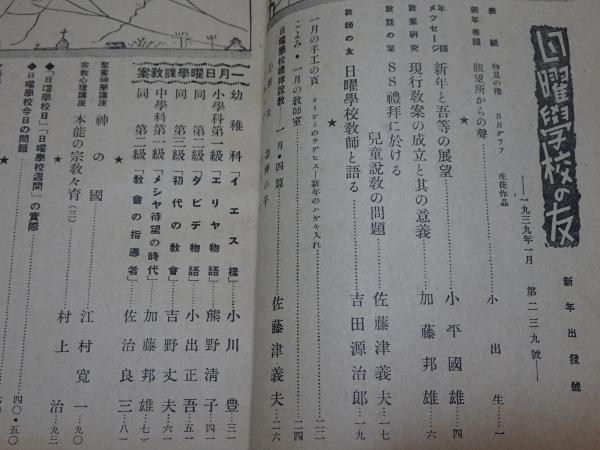 日曜學校の友
一九三九年一月 第二三九號
新年出發號
表紙 物見の櫓 小出生…一
SSグラフ 生徒作品
新年卷頭 展望所からの聲
年頭メツセージ 新年と吾等の展望……小平國雄…四
教案研究 現行教案の成立と其の意義……加藤邦雄…六
教話の栞 SS禮拜に於ける兒童說教の問題……佐藤津義夫…一七
教師の友 日曜學校教師と語る……吉田源治郎…一九
一月の手工の頁 新年のハガキ入れ…二二
こよみ・一月の教師室……二四
日曜學校禮拜說教 一月・四篇……佐藤津義夫…二六
一月日曜學課教案
幼稚科「イエス樣」……小川豊…三一
小學科第一級「エリヤ物語」……熊野淸子…四一
同 第二級「ダビデ物語」……小出正吾…五一
同 第三級「初代の教會」……吉野丈夫…六一
中學科第一級「メシヤ待望の時代」……加藤邦雄…七一
同 第二級「教會の指導者」……佐治良三…八一
★
聖書神學講座 神の國……江村寬一…九〇
宗教心理講座 本能の宗教々育(三)……村上治…九三
★
◆「日曜學校日」「日曜學校週間」の實際
◆日曜學校今日の問題……四〇・五〇
★